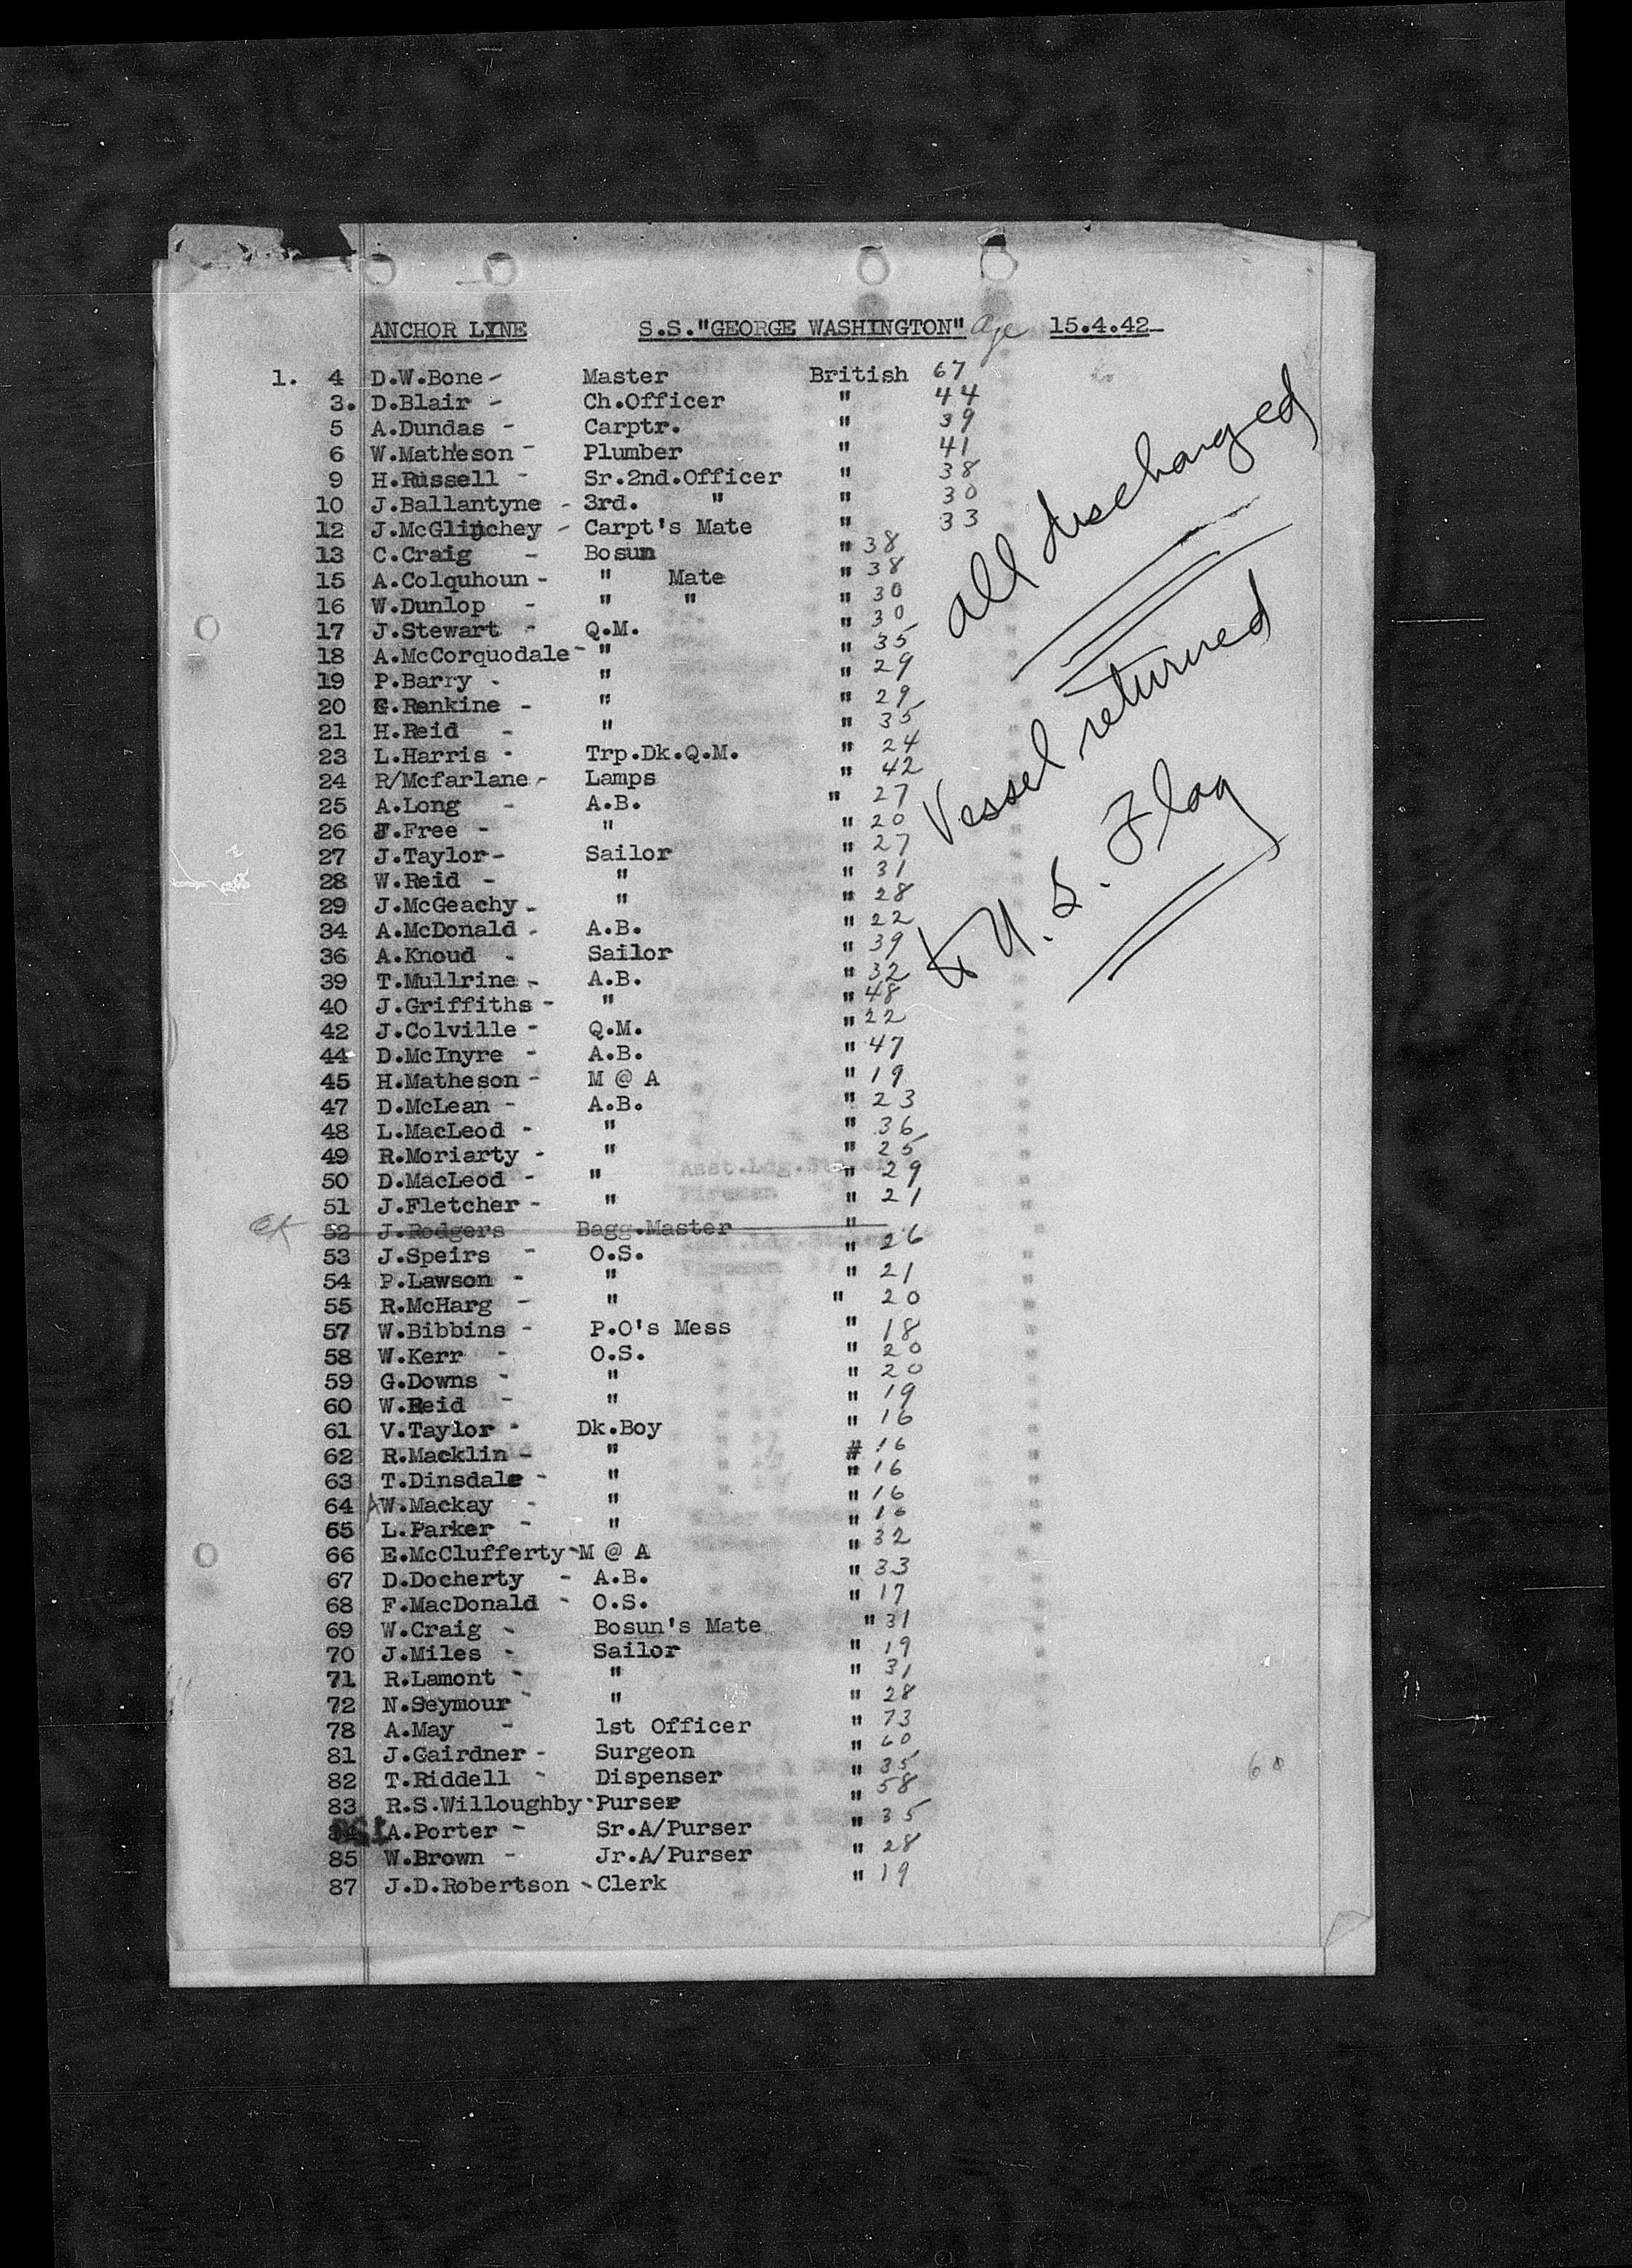 ANCHOR LYNE S.S."GEORGE WASHINGTON" Age 15.4.42-
1. 4 D.W.Bone - Master British 67
3. D.Blair - Ch.Officer " 44
5 A.Dundas - Carptr. " 39
6 W.Matheson - Plumber " 41
9 H.Russell - Sr.2nd.Officer " 38
10 J.Ballantyne - 3rd. " " 30
12 J.McGlinchey - Carpt's Mate " 33
13 C.Craig - Bosun " 38
15 A.Colquhoun - " Mate " 38
16 W.Dunlop - " " " 30
17 J.Stewart - Q.M. " 30
18 A.McCorquodale - " " 35
19 P.Barry - " " 29
20 G.Rankine - " " 29
21 H.Reid - " " 35
23 L.Harris - Trp.Dk.Q.M. " 24
24 R/Mcfarlane - Lamps " 42
25 A.Long - A.B. " 27
26 F.Free - " " 20
27 J.Taylor - Sailor " 27
28 W.Reid - " " 31
29 J.McGeachy - " " 28
34 A.McDonald - A.B. " 22
36 A.Knoud - Sailor " 39
39 T.Mullrine - A.B. " 32
40 J.Griffiths - " " 48
42 J.Colville - Q.M. " 22
44 D.McInyre - A.B. " 47
45 H.Matheson - M @ A " 19
47 D.McLean - A.B. " 23
48 L.MacLeod - " " 36
49 R.Moriarty - " " 25
50 D.MacLeod - " " 29
51 J.Fletcher - " " 21
52 J.Rodgers Bagg.Master "
53 J.Speirs - O.S. " 26
54 P.Lawson - " " 21
55 R.McHarg - " " 20
57 W.Bibbins - P.O's Mess " 18
58 W.Kerr - O.S. " 20
59 G.Downs - " " 20
60 W.Reid - " " 19
61 V.Taylor - Dk.Boy " 16
62 R.Macklin - " # 16
63 T.Dinsdale - " " 16
64 W.Mackay - " " 16
65 L.Parker - " " 16
66 E.McClufferty - M @ A " 32
67 D.Docherty - A.B. " 33
68 F.MacDonald - O.S. " 17
69 W.Craig - Bosun's Mate " 31
70 J.Miles - Sailor " 19
71 R.Lamont - " " 31
72 N.Seymour - " " 28
78 A.May - 1st Officer " 73
81 J.Gairdner - Surgeon " 60
82 T.Riddell - Dispenser " 35
83 R.S.Willoughby - Purser " 58
84 A.Porter - Sr.A/Purser " 35
85 W.Brown - Jr.A/Purser " 28
87 J.D.Robertson - Clerk " 19
all discharged
Vessel returned
to U.S. Flag
60